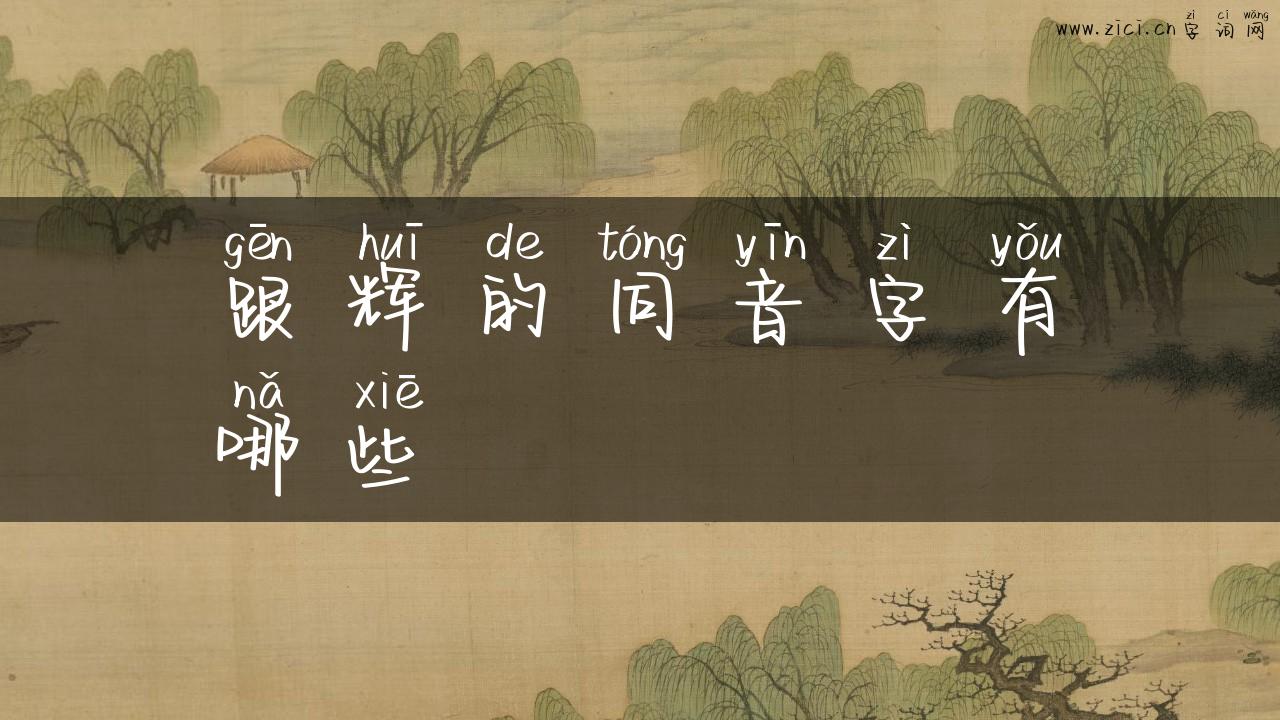 zì cí wǎng
www.zici.cn 字词网
gēn huī de tóng yīn zì yǒu
跟辉的同音字有
nǎ xiē
哪些